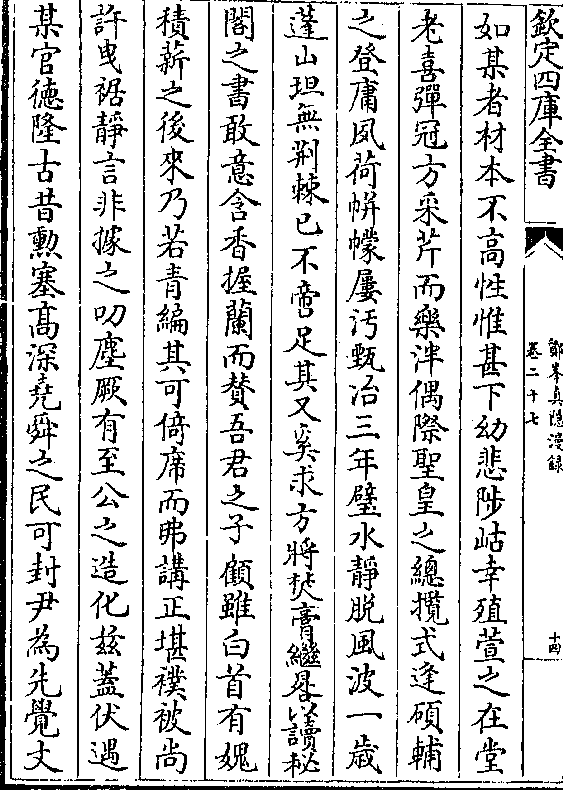 欽定四庫全書
鄮峯真隱漫録
卷二十七
十四
如某者材本不高性惟甚下幼悲陟岵幸殖萱之在堂
老喜彈冠方采芹而樂泮偶際聖皇之總攬式逢碩輔
之登庸夙荷帡幪屢汚甄冶三年璧水靜脱風波一歳
蓬山坦無荆棘已不啻足其又奚求方將焚膏繼晷以讀秘
閣之書敢意含香握蘭而賛吾君之子顧雖白首有媿
積薪之後來乃若青編其可倚席而弗講正堪襆被尚
許曳裾靜言非據之叨塵厥有至公之造化兹蓋伏遇
某官徳隆古昔勲塞髙深堯舜之民可封尹為先覺文